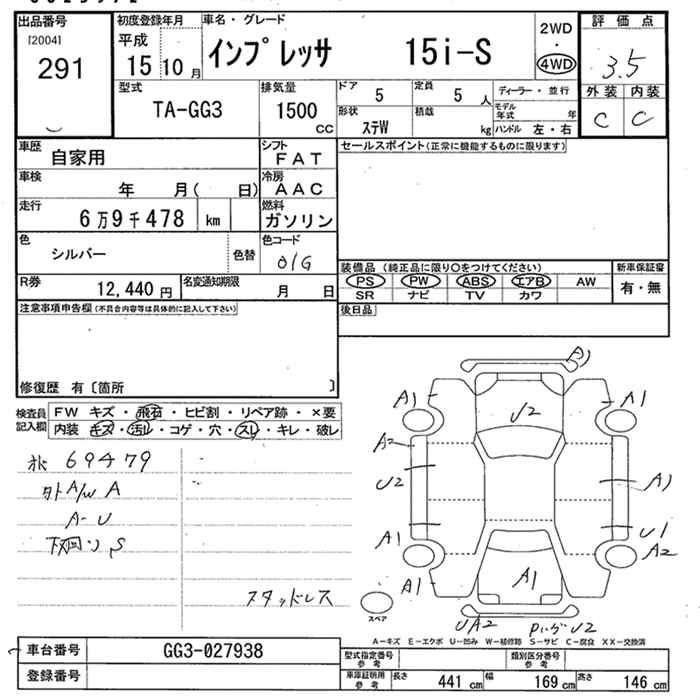 出品番号
[2004]
291
初度登録年月
平成
15年 10月
車名・グレード
インプレッサ 15i-S
2WD
・
4WD
評価点
3.5
外装 内装
C C
型式
TA-GG3
排気量
1500
CC
ドア 5
定員 5 人
ディーラー・並行
形状 ステW
積載 kg
モデル年式 年
ハンドル 左・右
車歴 自家用
シフト FAT
車検 年 月( 日)
冷房 AAC
走行 6万9千478 km
燃料 ガソリン
色 シルバー 色替
色コード 01G
R券 12,440円
名変通知期限 月 日
セールスポイント(正常に機能するものに限ります)
装備品(純正品に限り○をつけてください)
新車保証書
PS PW ABS エアB AW
有・無
SR ナビ TV カワ
後日品
注意事項申告欄(不具合内容等は具体的に記入して下さい)
修復歴 有〔箇所 〕
検査員記入欄
FW キズ・飛石・ヒビ割・リペア跡・×要
内装 キズ・汚レ・コゲ・穴・スレ・キレ・破レ
69479
外A/W A
A-U
下回り S
スタッドレス
A1
A1 U2 A1
A2
U2 A1
U1
A1 A2
A1 A1
スペア
UA2 U2
A-キズ E-エクボ U-凹み W-補修跡 S-サビ C-腐食 XX-交換済
車台番号 GG3-027938
登録番号
型式指定番号 参考
類別区分番号 参考
車庫証明用 参考
長さ 441 cm
幅 169 cm
高さ 146 cm